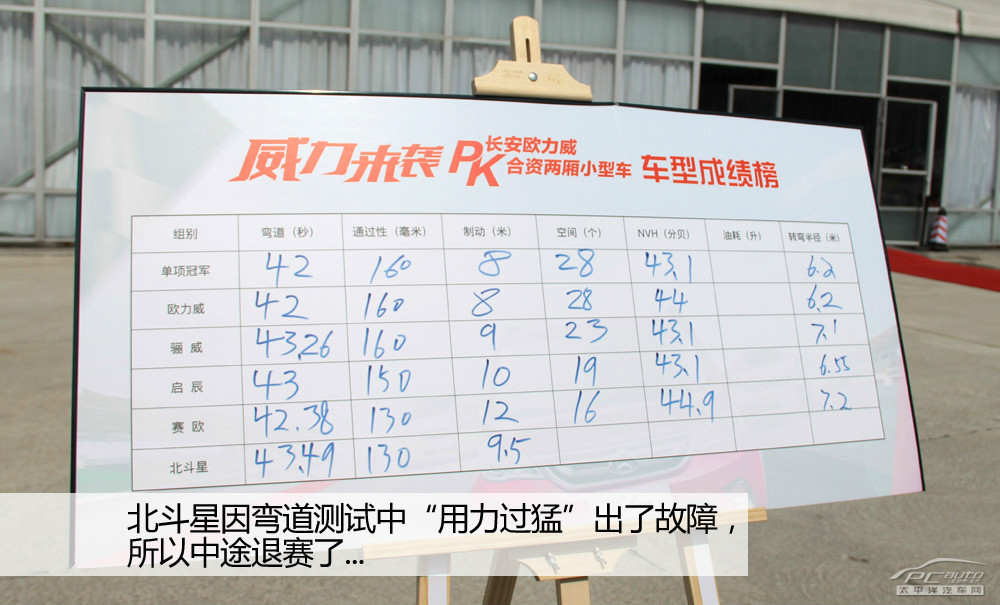 威力来袭 PK 长安欧力威
合资两厢小型车 车型成绩榜
组别 弯道（秒） 通过性（毫米） 制动（米） 空间（个） NVH（分贝） 油耗（升） 转弯半径（米）
单项冠军 42 160 8 28 43.1 6.2
欧力威 42 160 8 28 44 6.2
骊威 43.26 160 9 23 43.1 7.1
启辰 43 150 10 19 43.1 6.55
赛欧 42.38 130 12 16 44.9 7.2
北斗星 43.49 130 9.5
北斗星因弯道测试中“用力过猛”出了故障，
所以中途退赛了...
PCauto
太平洋汽车网